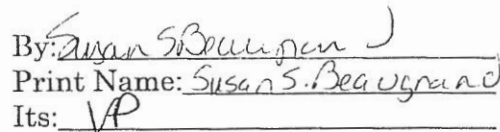 By: Susan S. Beaugrand
Print Name: Susan S. Beaugrand
Its: VP